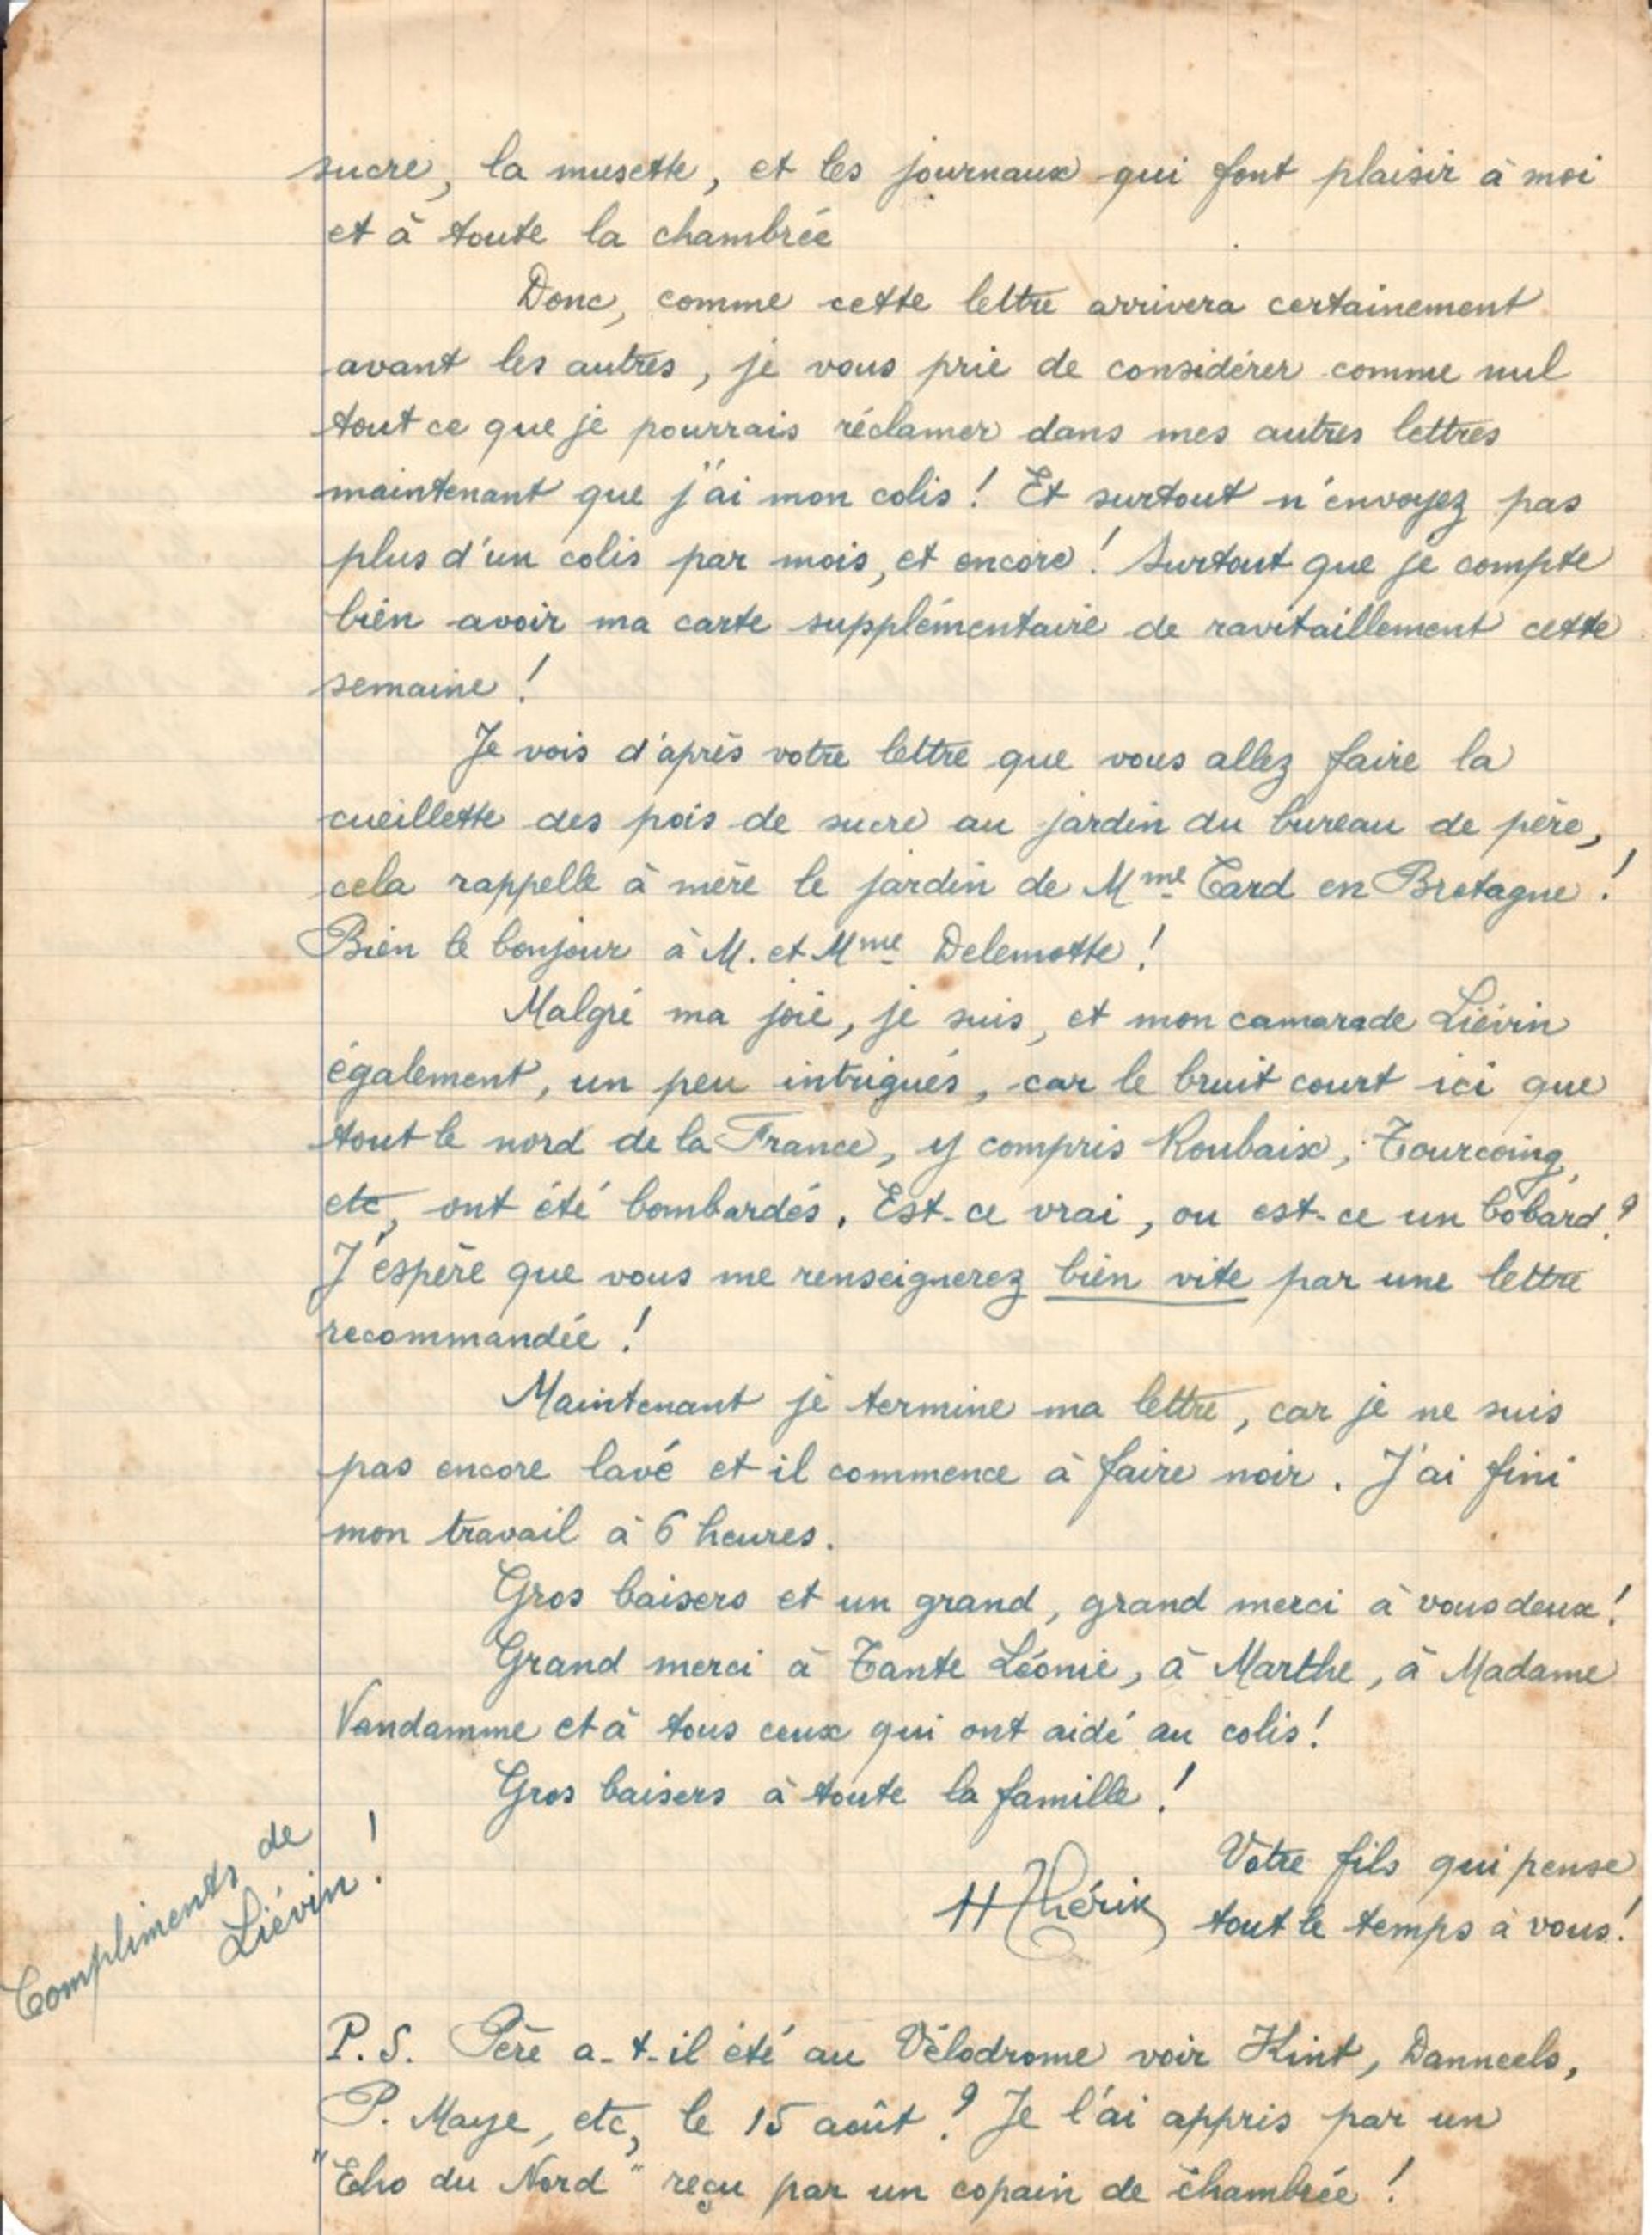 sucre, la musette, et les journaux qui font plaisir à moi
et à toute la chambrée
Donc, comme cette lettre arrivera certainement
avant les autres, je vous prie de considérer comme nul
tout ce que je pourrais réclamer dans mes autres lettres
maintenant que j'ai mon colis ! Et surtout n'envoyez pas
plus d'un colis par mois, et encore ! Surtout que je compte
bien avoir ma carte supplémentaire de ravitaillement cette
semaine !
Je vois d'après votre lettre que vous allez faire la
cueillette des pois de sucre au jardin du bureau de père,
cela rappelle à mère le jardin de Mme Card en Bretagne !
Bien le bonjour à M. et Mme Delemotte !
Malgré ma joie, je suis, et mon camarade Liévin
également, un peu intrigués, car le bruit court ici que
tout le nord de la France, y compris Roubaix, Tourcoing,
etc, ont été bombardés. Est-ce vrai, ou est-ce un bobard ?
J'espère que vous me renseignerez bien vite par une lettre
recommandée !
Maintenant je termine ma lettre, car je ne suis
pas encore lavé et il commence à faire noir. J'ai fini
mon travail à 6 heures.
Gros baisers et un grand, grand merci à vous deux !
Grand merci à Tante Léonie, à Marthe, à Madame
Vandamme et à tous ceux qui ont aidé au colis !
Gros baisers à toute la famille !
Votre fils qui pense
tout le temps à vous !
HThérik
Compliments de
Liévin !
P.S. Père a-t-il été au Vélodrome voir Kint, Danneels,
P. Maye, etc, le 15 août ? Je l'ai appris par un
"Echo du Nord" reçu par un copain de chambrée !